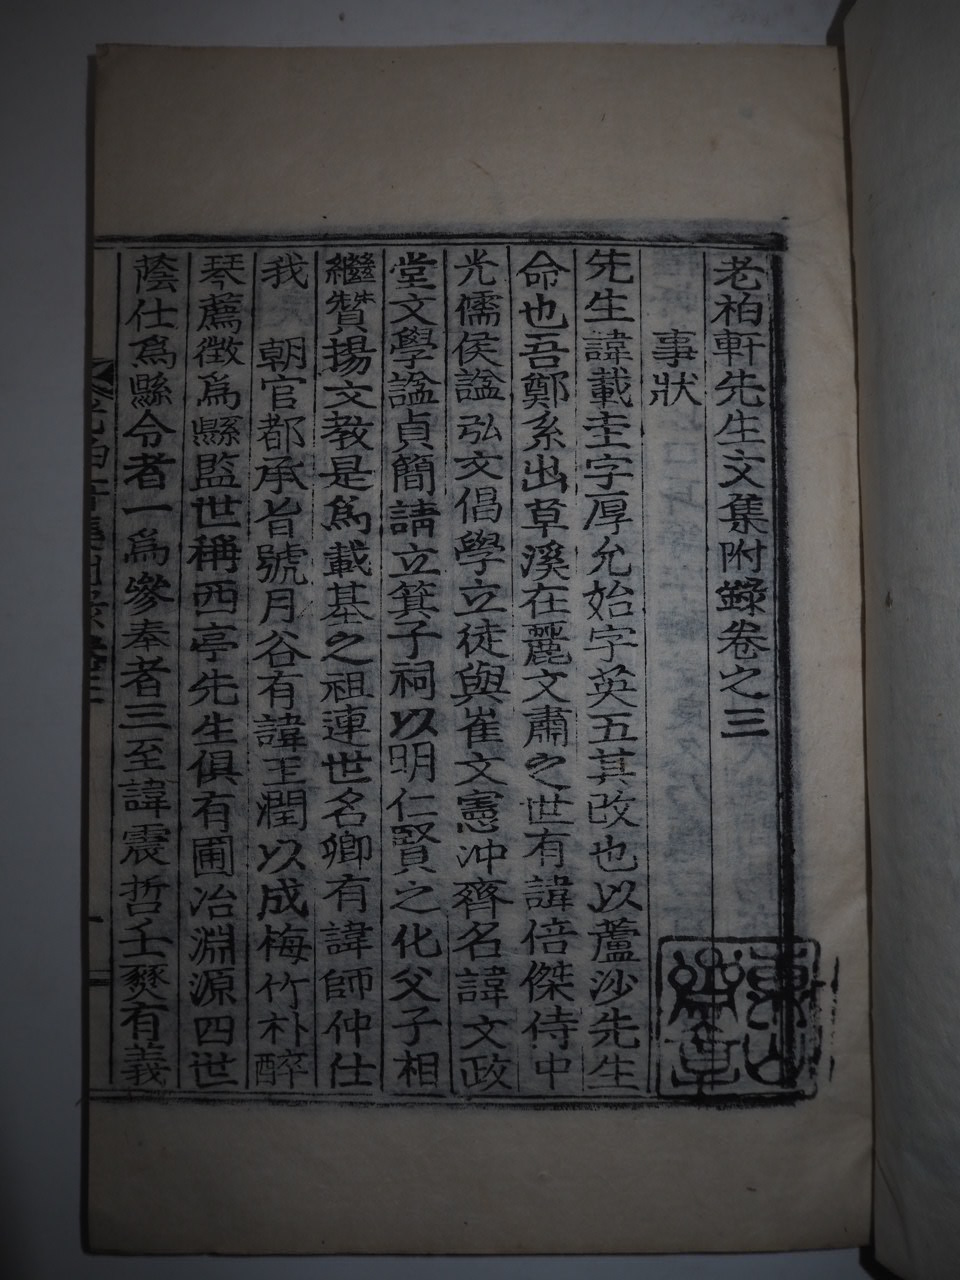 老柏軒先生文集附錄卷之三
事狀
先生諱載圭字厚允始字英五其改也以蘆沙先生
命也吾鄭系出草溪在麗文肅之世有諱倍傑侍中
光儒侯諡弘文倡學立徒與崔文憲冲齊名諱文政
堂文學諡貞簡請立箕子祠以明仁賢之化父子相
繼贊揚文教是爲載基之祖連世名卿有諱師仲仕
我 朝官都承旨號月谷有諱玉潤以成梅竹朴醉
琴薦徵爲縣監世稱西亭先生俱有圃冶淵源四世
蔭仕爲縣令者一爲參奉者三至諱震哲壬燹有義